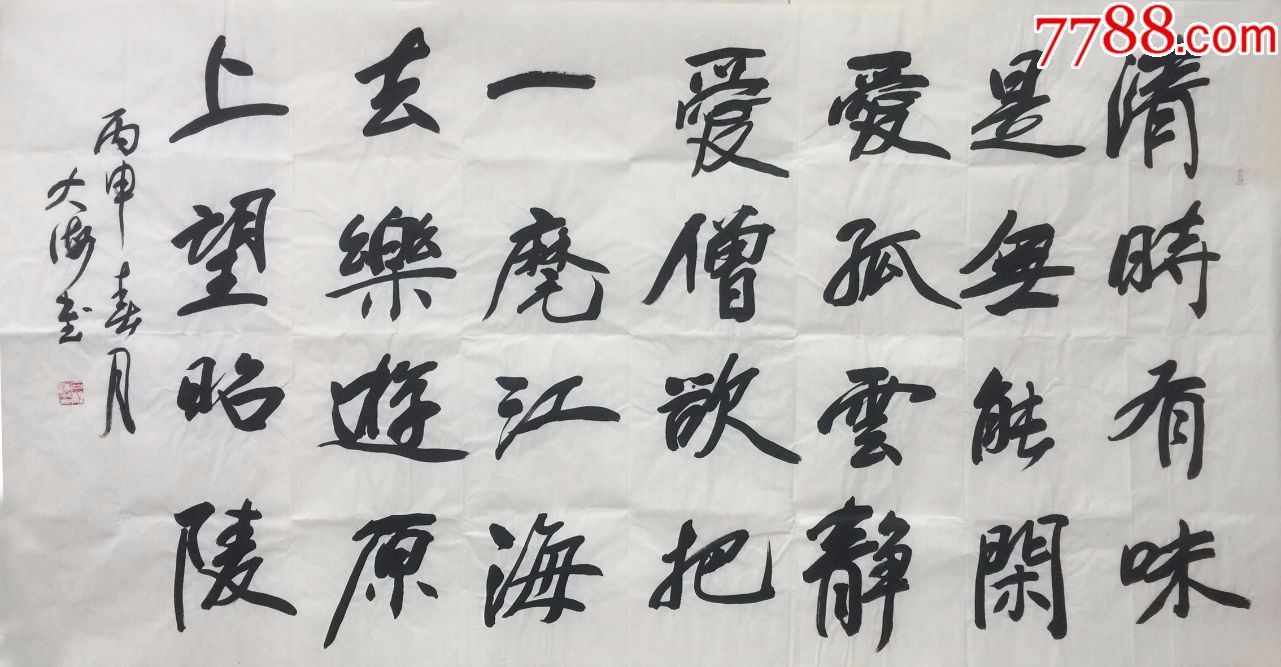 7788.com
清時有味
是無能閑
愛孤雲静
愛僧欲把
一麾江海
去樂遊原
上望昭陵
丙申春月
大海書